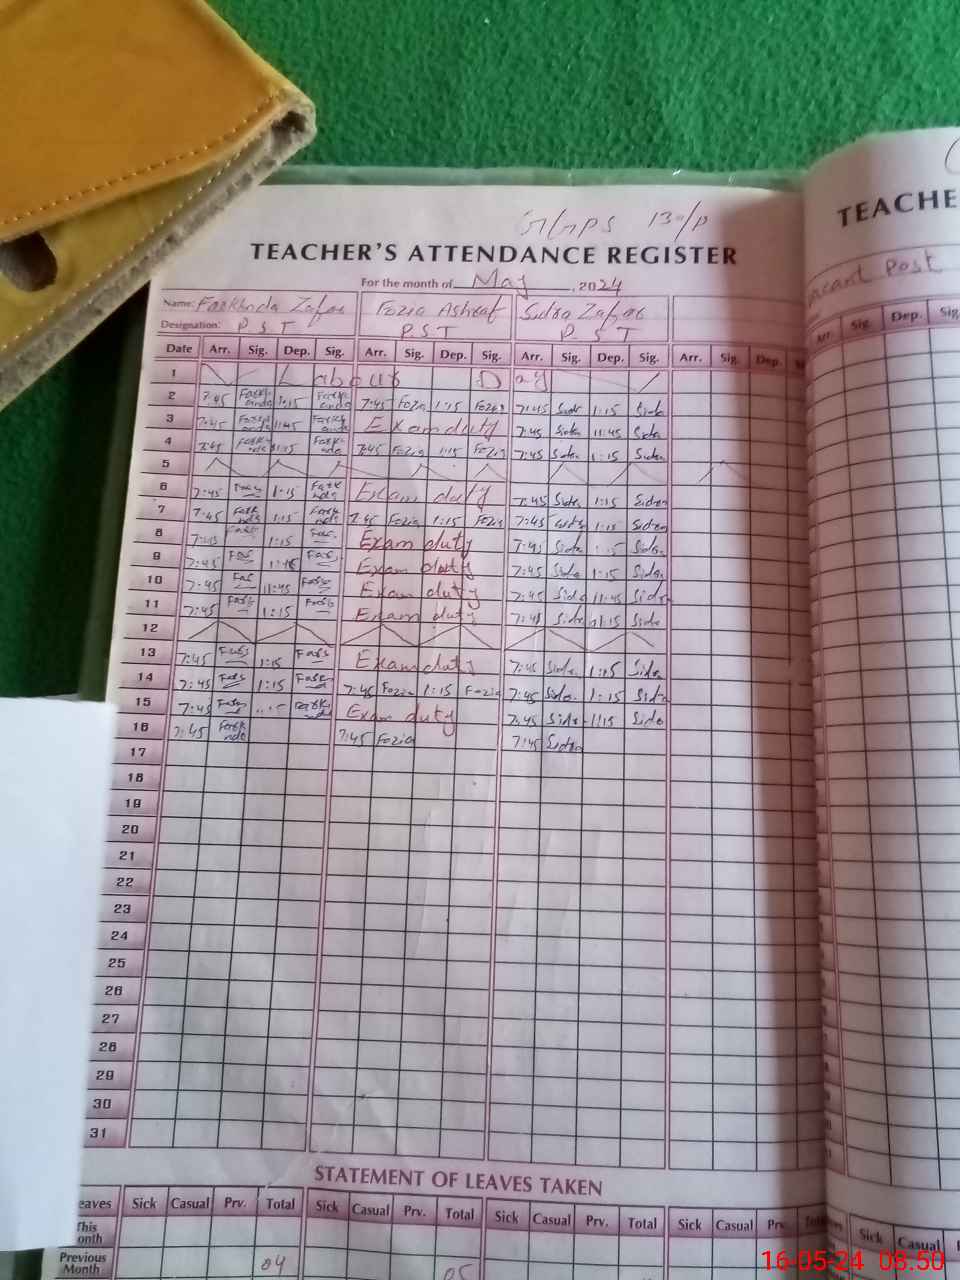 G/GPS 13-/P
TEACHER'S ATTENDANCE REGISTER
For the month of May, 2024
Name: Farkhnda Zafar Fozia Ashraf Sidra Zafar
Designation: P S T P.S T P. S T
Date Arr. Sig. Dep. Sig. Arr. Sig. Dep. Sig. Arr. Sig. Dep. Sig. Arr. Sig. Dep.
1 Labour Day
2 7:45 Farkhanda 1:15 Farkhanda 7:45 Fozia 1:15 Fozia 7:45 Sidra 1:15 Sidra
3 7:45 Farkhanda 11:45 Farkhanda Exam duty 7:45 Sidra 11:45 Sidra
4 7:45 Farkhnda 1:15 Farkhnda 7:45 Fozia 1:15 Fozia 7:45 Sidra 1:15 Sidra
5
6 7:45 1:15 Farkhnda Exam duty 7:45 Sidra 1:15 Sidra
7 7:45 Farkhnda 1:15 Farkhnda 7:45 Fozia 1:15 Fozia 7:45 Sidra 1:15 Sidra
8 7:45 1:15 Exam duty 7:45 Sidra 1:15 Sidra
9 7:45 Exam duty 7:45 Sidra 1:15 Sidra
10 7:45 11:45 Exam duty 7:45 Sidra 11:45 Sidra
11 7:45 1:15 Exam duty 7:45 Sidra 1:15 Sidra
12
13 7:45 1:15 Exam duty 7:45 Sidra 1:15 Sidra
14 7:45 1:15 7:45 Fozia 1:15 Fozia 7:45 Sidra 1:15 Sidra
15 7:45 Exam duty 7:45 Sidra 1:15 Sidra
16 7:45 Farkhnda 7:45 Fozia 7:45 Sidra
17
18
19
20
21
22
23
24
25
26
27
28
29
30
31
STATEMENT OF LEAVES TAKEN
eaves Sick Casual Prv. Total Sick Casual Prv. Total Sick Casual Prv. Total Sick Casual
This
onth
Previous
Month 04 05
TEACHE
acant Post
Arr. Sig. Dep. Sig.
Sick Casual
16-05-24 08.50